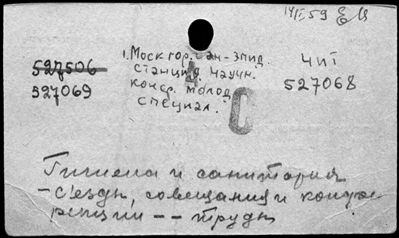 14/II 59
527506
527069
1. Моск гор. сан-эпид.
станция. Научн.
конф. молод.
специал.
ЧИТ
527068
С
Гигиена и санитария
- съезды, совещания и конфе
ренции -- труды